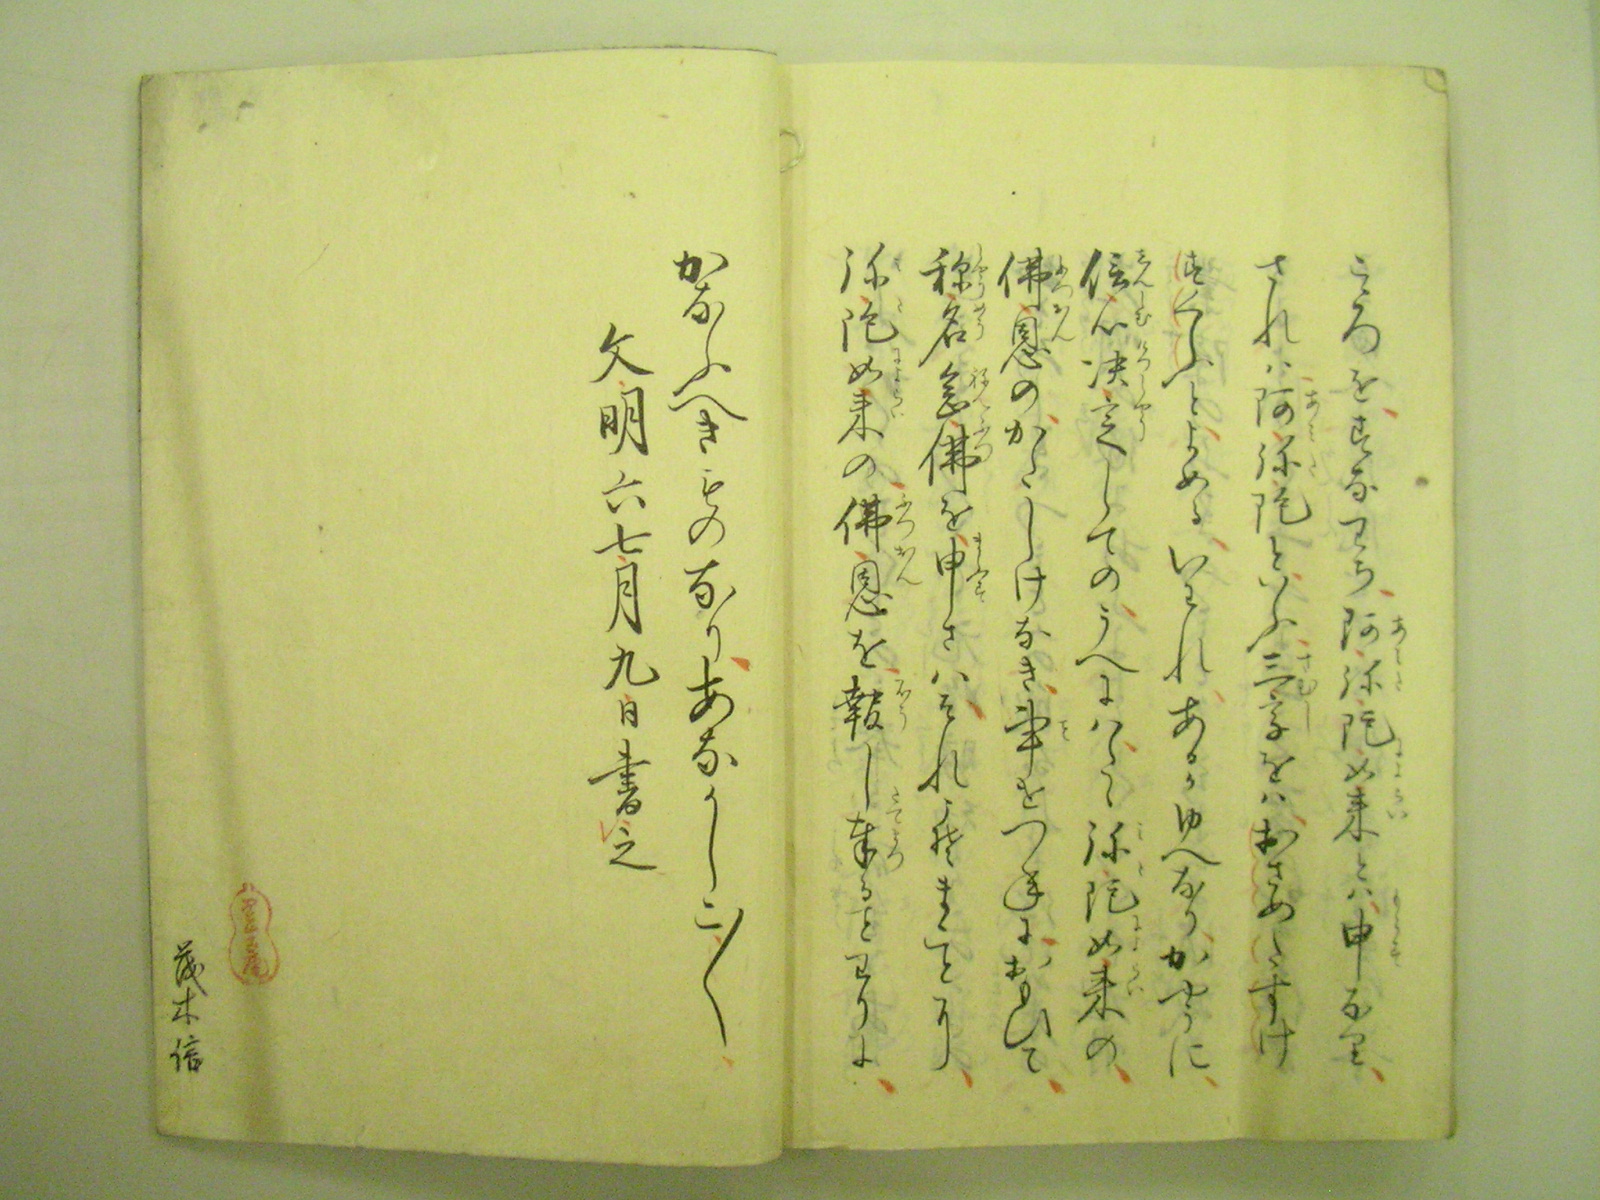 こゝろをすなわち阿弥陀如来とは申なり
されは阿弥陀といふ三字をはおさめたすけ
すくふとよめるいわれあるかゆへなりかやうに
信心决定してのうへにはたゝ弥陀如来の
佛恩のかたしけなき事をつねにおもひて
称名念佛を申さはそれこそまことに
弥陀如来の佛恩を報し奉ることわりに
かなふへきものなりあなかしこ〱
文明六七月九日書之
茂木信